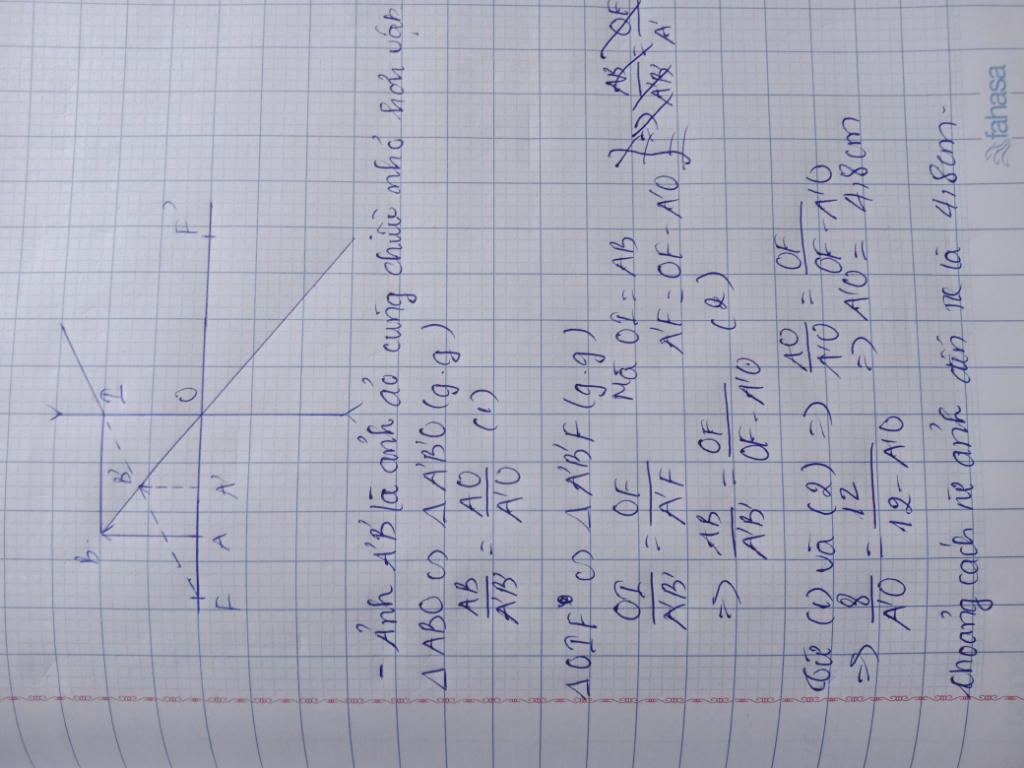 B
B'
I
F
A
A'
O
F'
- Ảnh A'B' là ảnh ảo cùng chiều nhỏ hơn vật
Δ ABO ∽ Δ A'B'O (g.g)
AB/A'B' = AO/A'O (1)
Δ OIF ∽ Δ A'B'F (g.g)
OI/A'B' = OF/A'F Mà OI = AB
A'F = OF - A'O
=> AB/A'B' = OF/OF - A'O (2)
Từ (1) và (2) => AO/A'O = OF/OF - A'O
=> 8/A'O = 12/12 - A'O => A'O = 4,8cm
Khoảng cách từ ảnh đến là 4,8cm.
fahasa